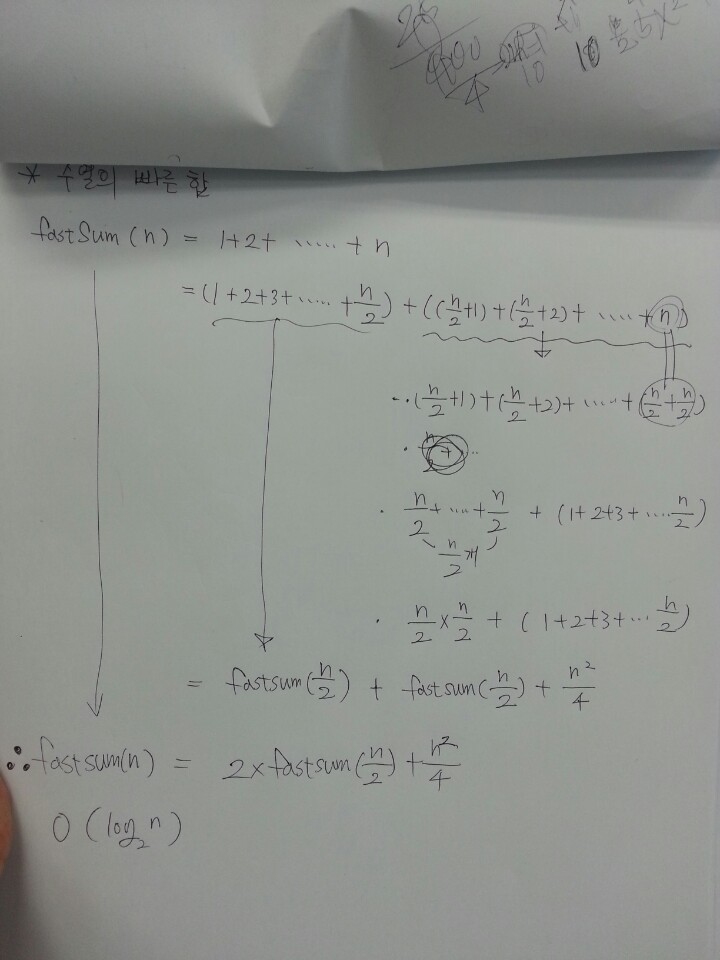 * 수열의 빠른 합
fastSum (n) = 1+2+ ...... + n
= (1+2+3+ ..... + n/2) + ((n/2+1) + (n/2+2) + ..... + n)
(n/2+1) + (n/2+2) + ..... + (n/2+n/2)
n/2 + .... + n/2 + (1+2+3+ ..... n/2)
n/2 개
n/2 × n/2 + (1+2+3+ ... n/2)
= fastsum(n/2) + fastsum(n/2) + n²/4
∴ fastsum(n) = 2× fastsum(n/2) + n²/4
O (log₂ n)